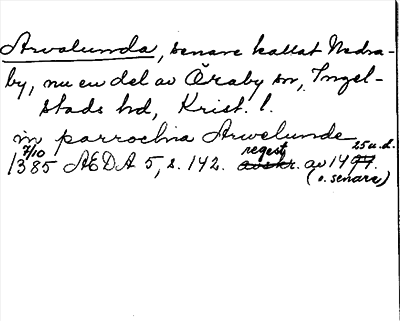 Arvalunda, senare kallat Nedra-
by, nu en del av Öraby sn, Ingel-
stads hd, Krist. l.
in parrochia Arwelunde
7/10 1385 AEDA 5, s. 142. regest av 14 25 u.d.
(o. senare)